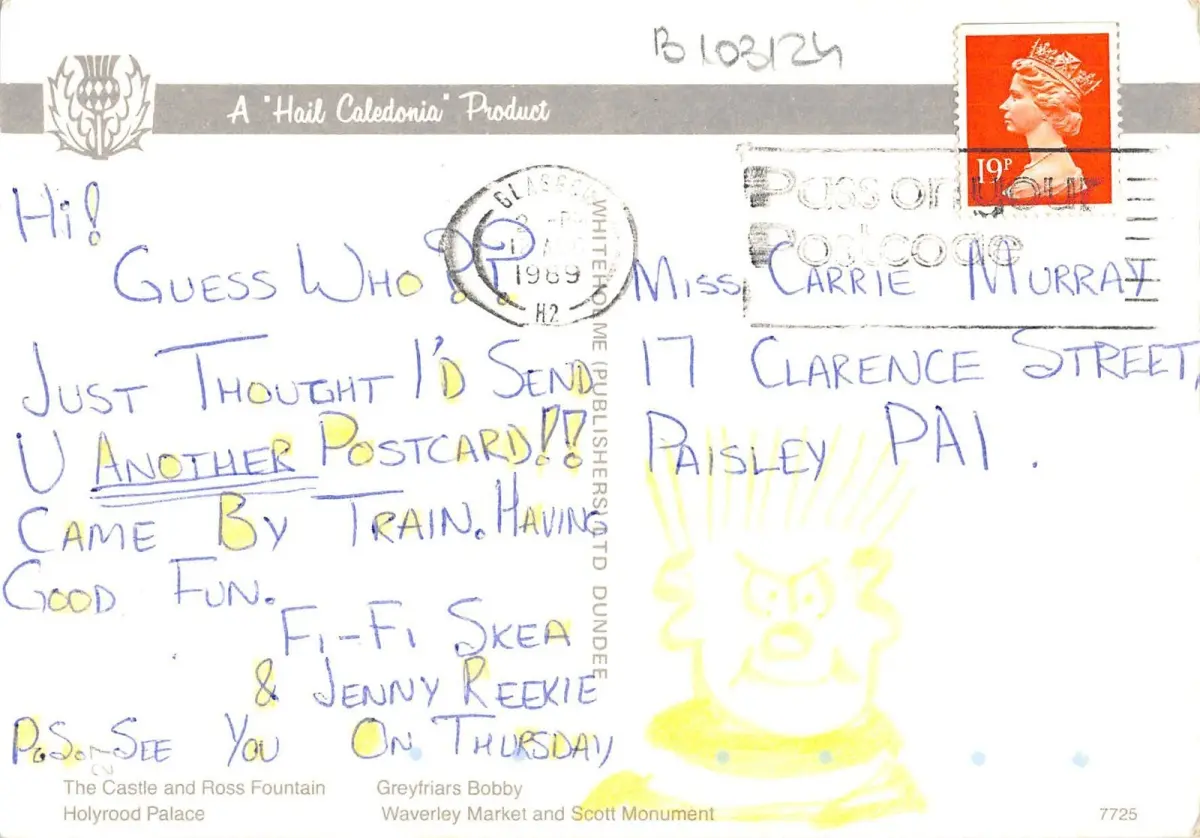 B 103124
A "Hail Caledonia" Product
19P
Pass on your
Postcode
GLASGOW
1989
H2
Hi!
GUESS WHO??
JUST THOUGHT I'D SEND
U ANOTHER POSTCARD!!
CAME BY TRAIN. HAVING
GOOD FUN.
FI-FI SKEA
& JENNY REEKIE
P.S. SEE YOU ON THURSDAY
WHITEHOLME (PUBLISHERS) LTD DUNDEE
MISS CARRIE MURRAY
17 CLARENCE STREET,
PAISLEY PA1.
The Castle and Ross Fountain
Holyrood Palace
Greyfriars Bobby
Waverley Market and Scott Monument
7725